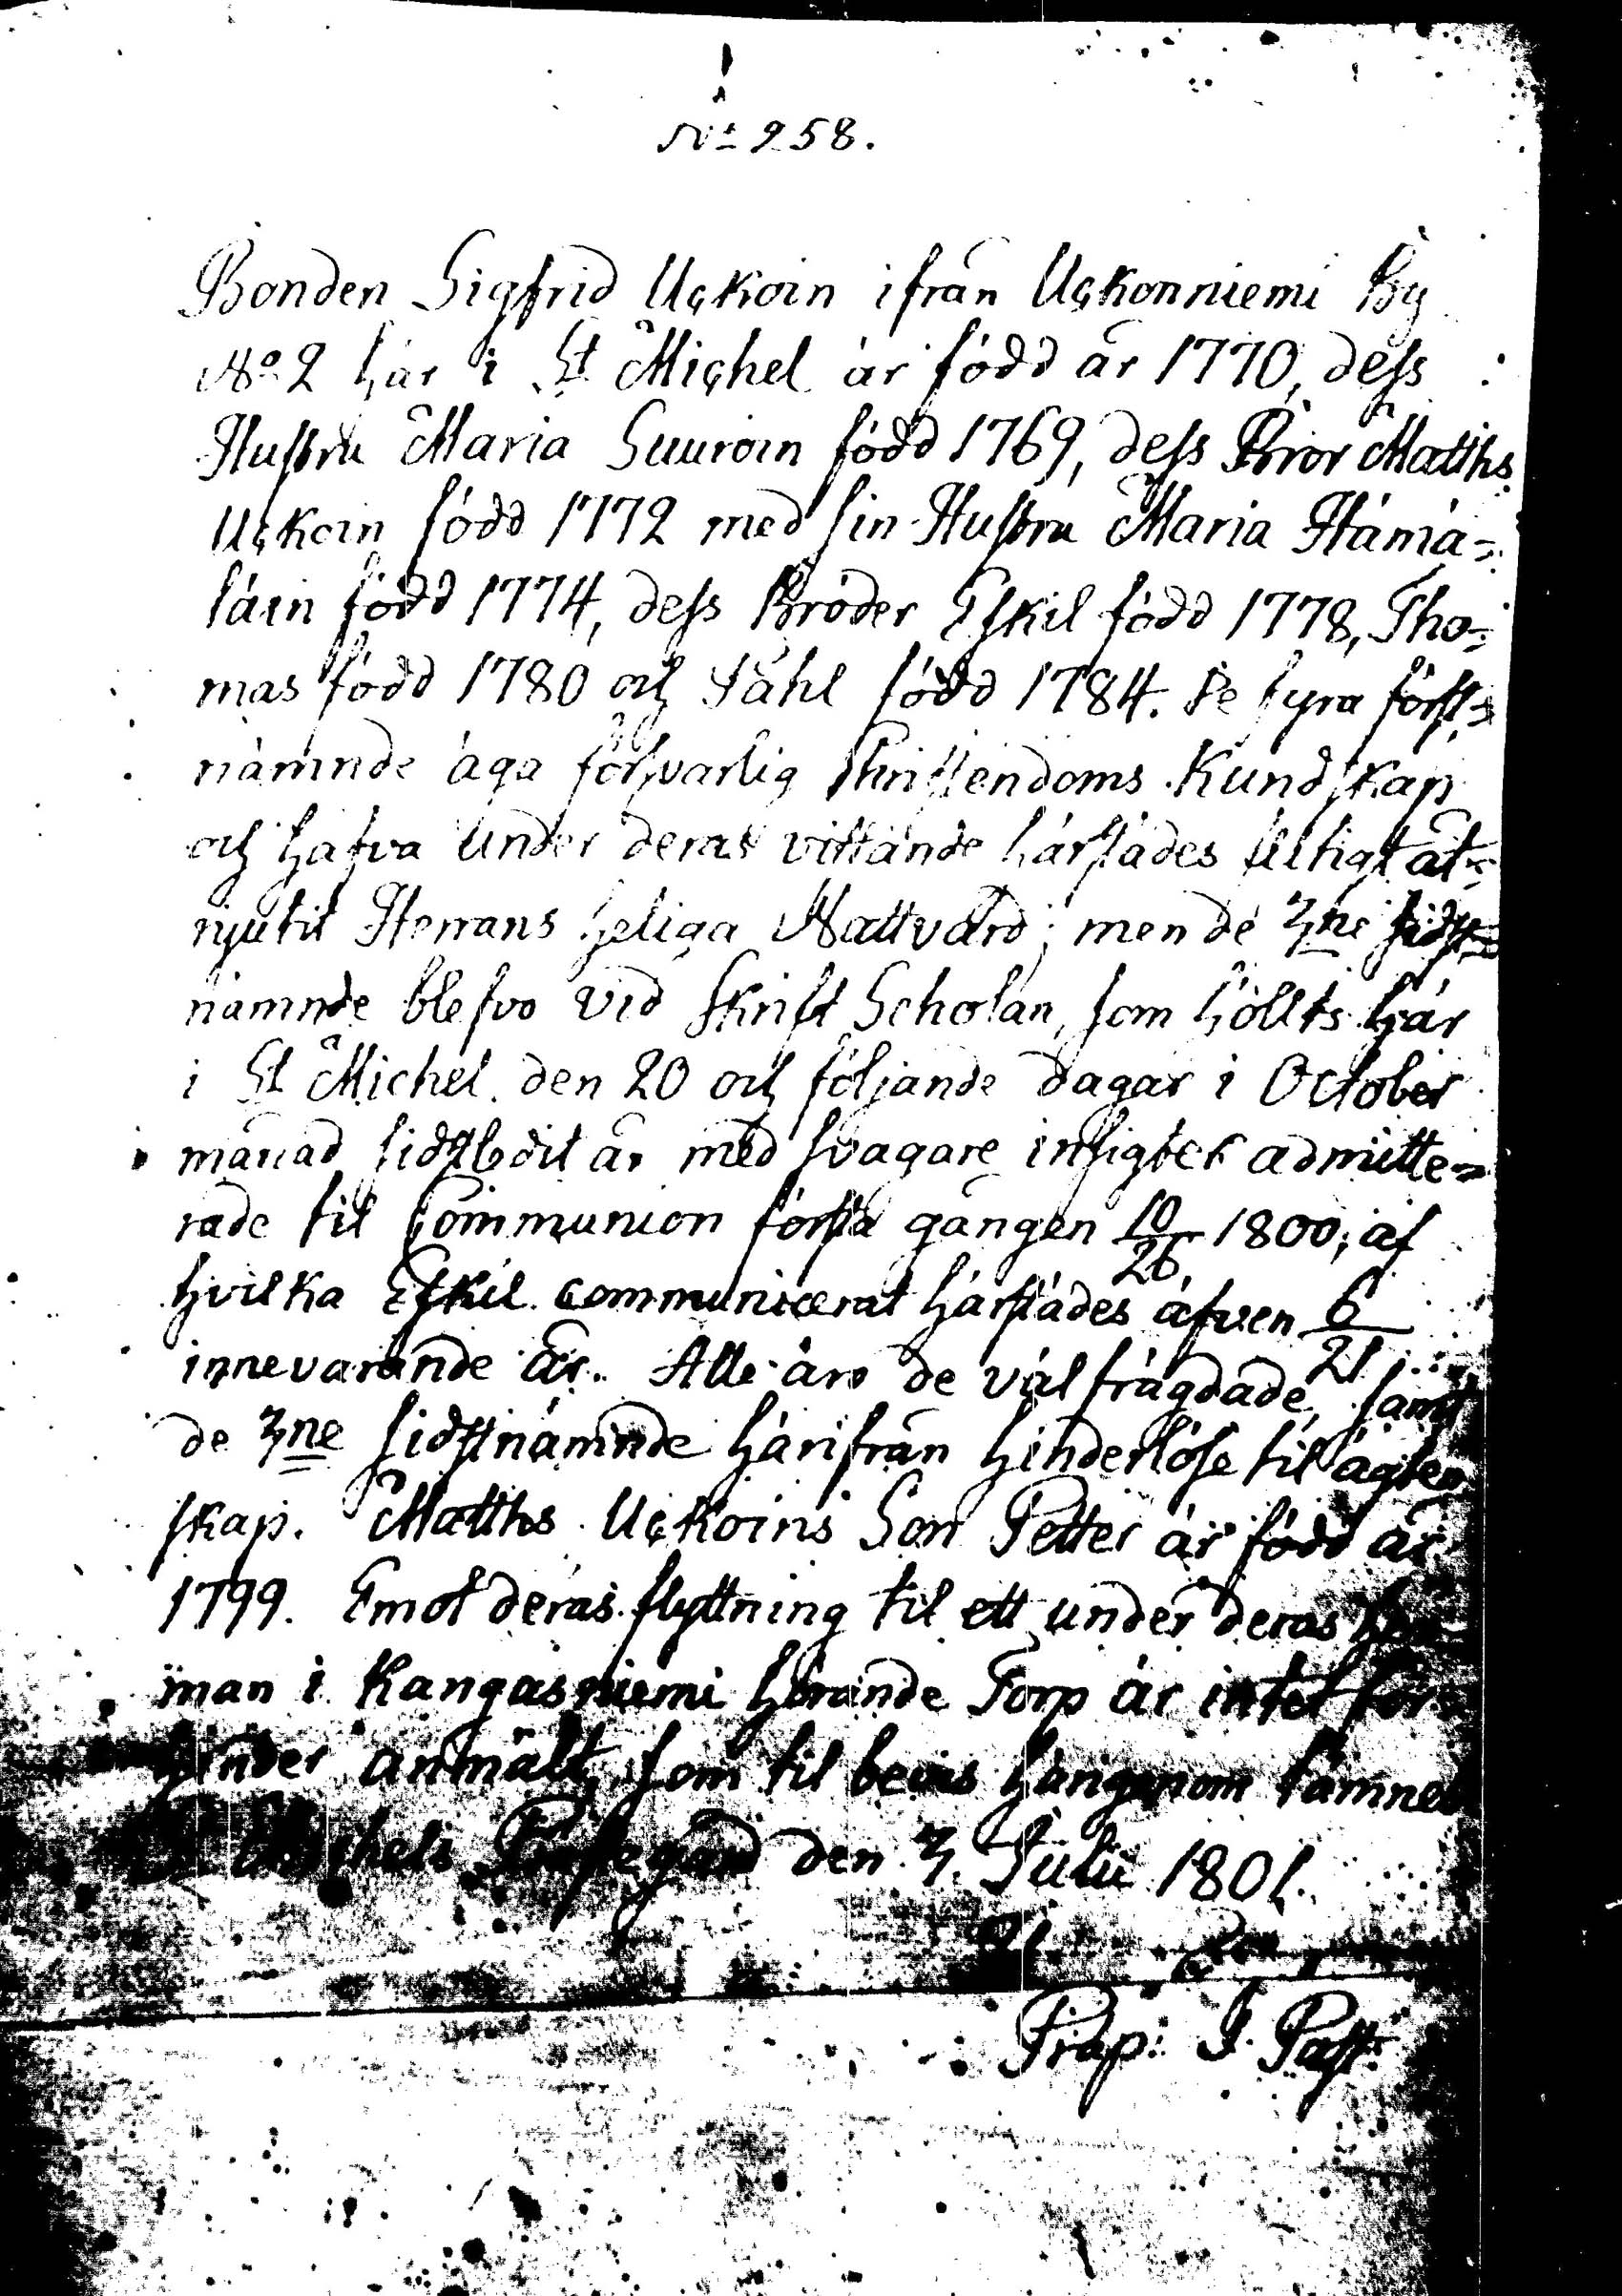 No 258.
Bonden Sigfrid Uckoin ifrån Uckonniemi By
No 2 här i St Michel är född år 1770, dess
Hustru Maria Suuroin född 1769, dess Bror Matths
Uckoin född 1772 med sin Hustru Maria Hämä=
läin född 1774, dess Bröder Eskil född 1778, Tho=
mas född 1780 och Påhl född 1784. De fyra först=
nämnde äga försvarlig Christendoms Kundskap
och hafva under deras vistande härstädes flitigt åt=
njutit Herrans heliga Nattvard; men de 3ne sidst=
nämnde blefvo vid Skrift Scholan, som hölts här
i St Michel den 20 och följande dagar i October
månad sidstledit år med svagare insigter admitte=
rade til Communion första gången 10/26 1800; af
hvilka Eskil communicerat härstädes äfven 6/21
innevarande år. Alle äro de väl frägdade, samt
de 3ne sidstnämnde härifrån hinderlöse til ägten
skap. Matths Uckoins Son Petter är född år
1799. Emot deras flyttning til ett under deras hem
man i Kangasniemi hörande Torp är intet för=
hinder anmält, som til bevis härigenom lämnes
St Michels Prästegård den 3. Julii 1801.
Præp: P. Past: